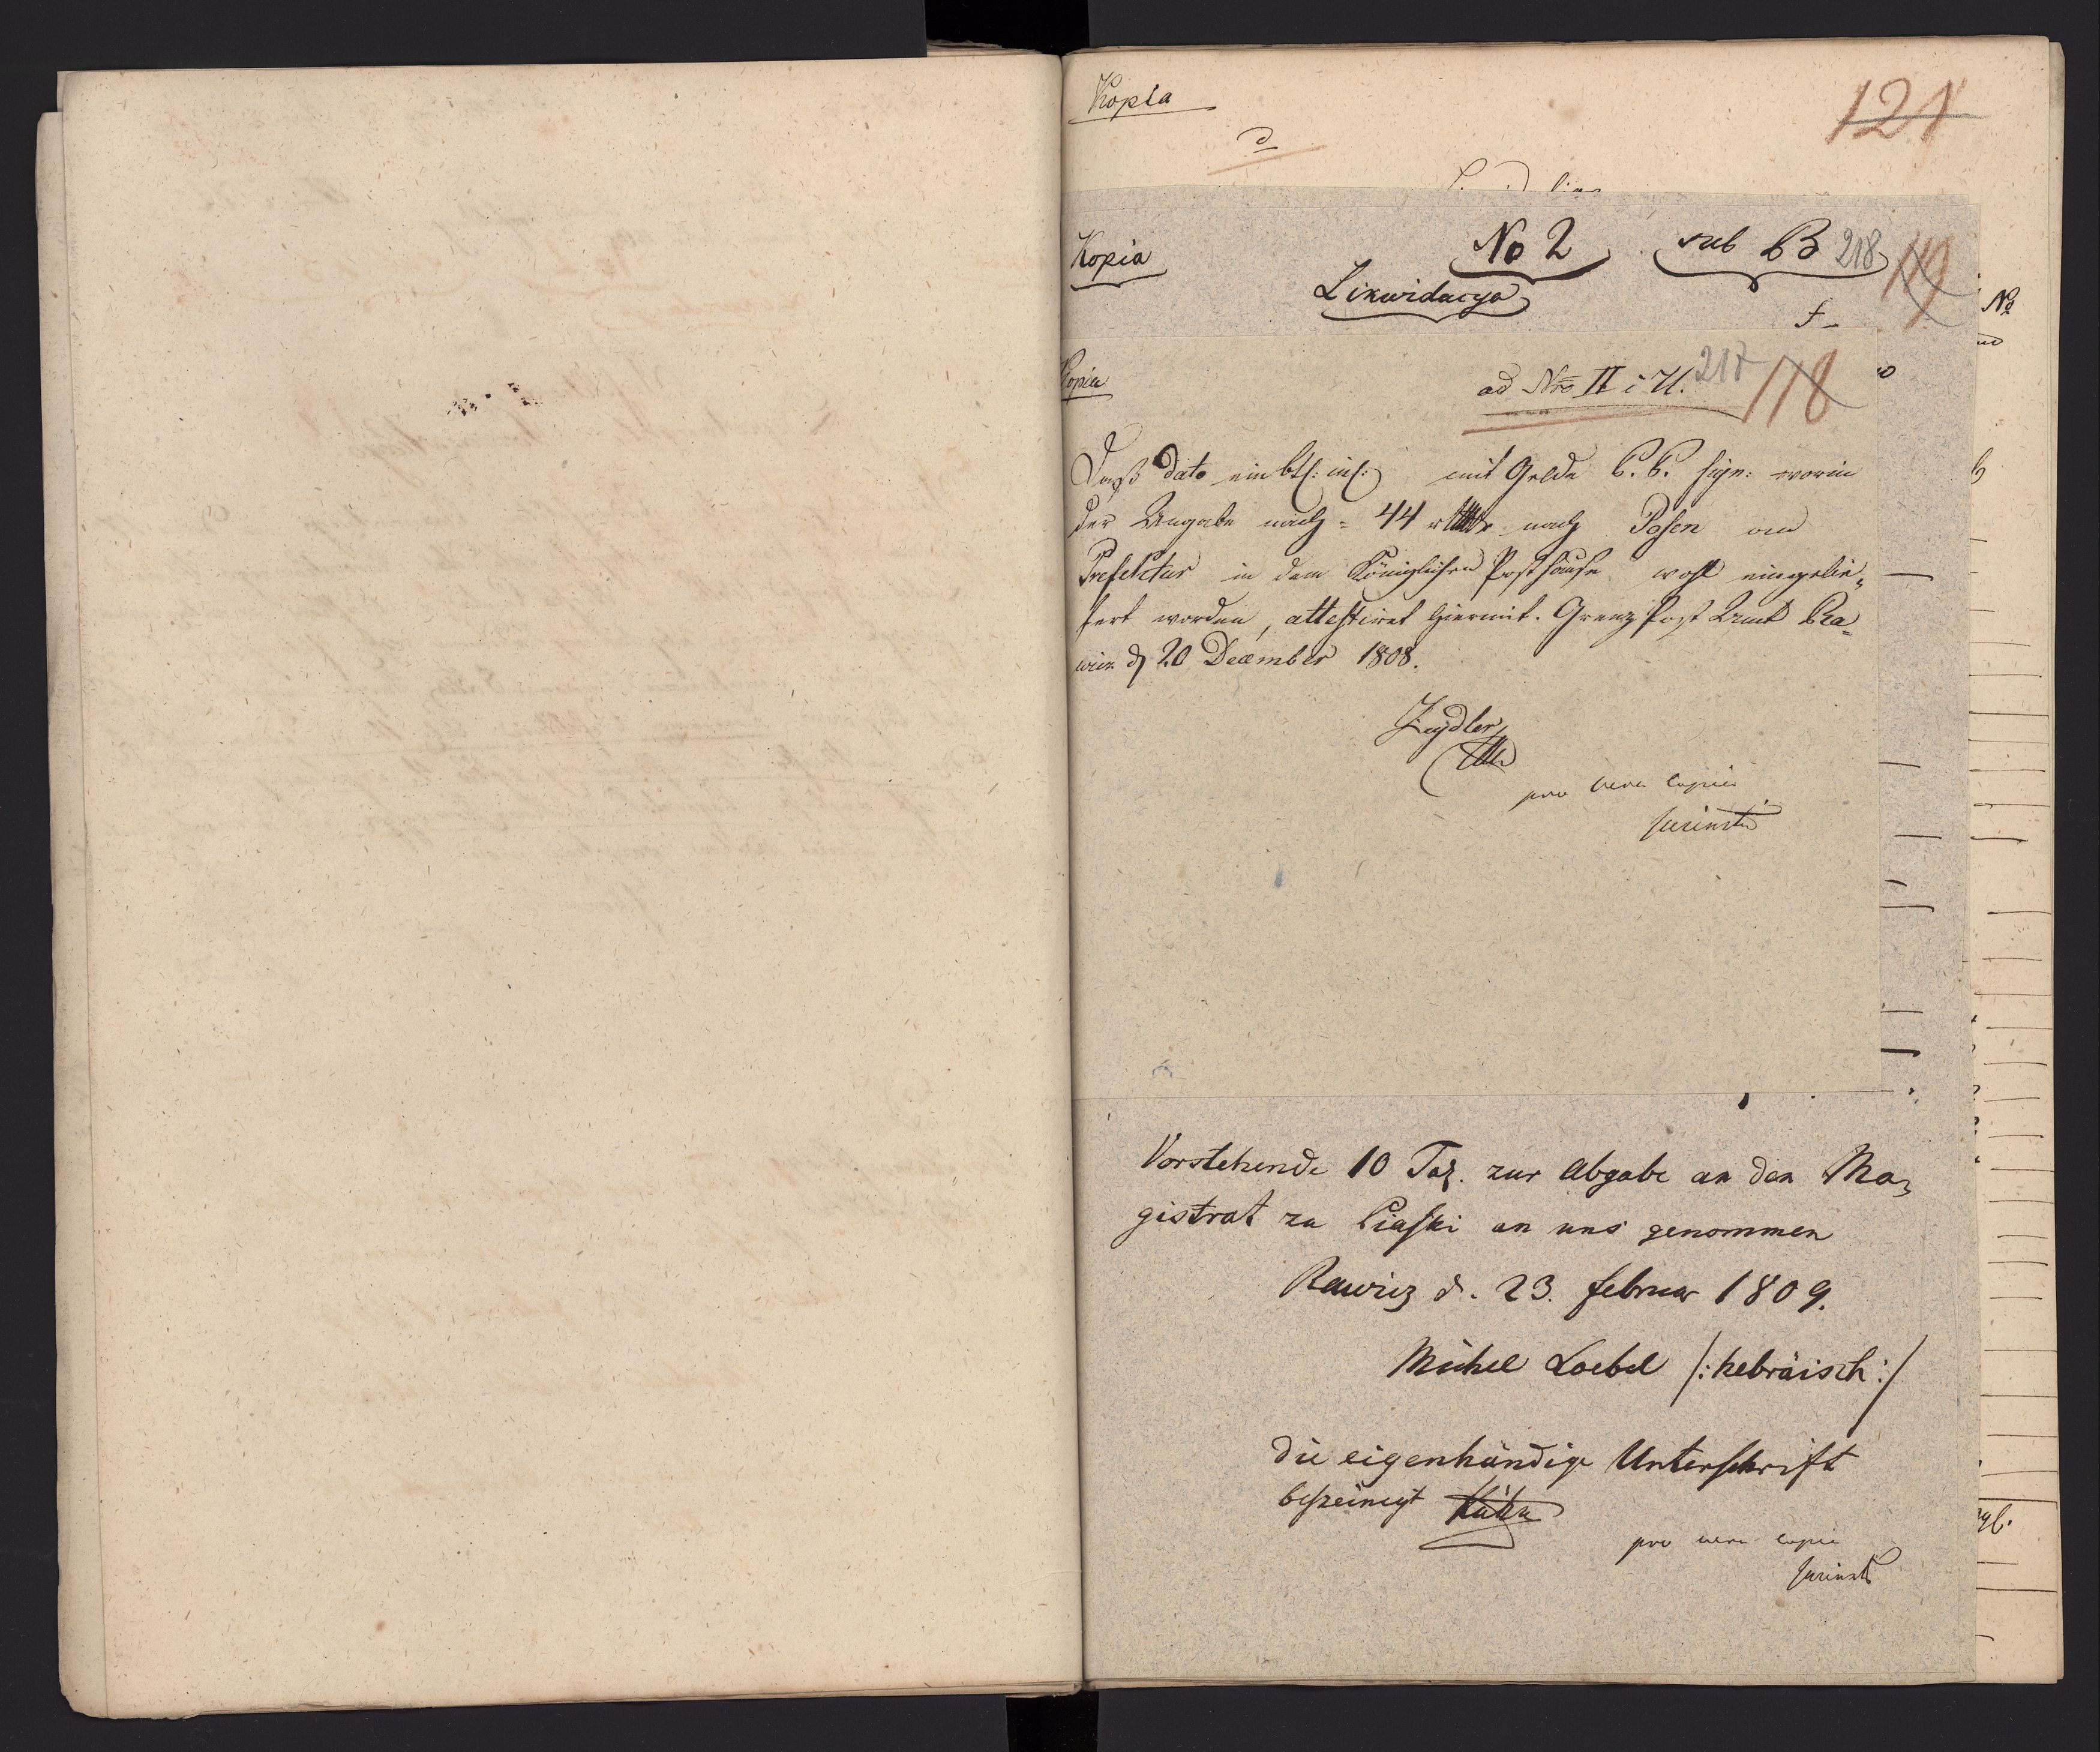 Kopia
121
Kopia
No 2 sub B 218 119
Likwidacya
No
Kopia
ad Nro II i U. 217 118
Daß dato ein btl: in: mit Gelde C. C. sign: worin
der Angabe nach = 44 nach Posen
Prefektur in dem Königlichen Posthause wohl eingelie„
fert worden, attestiret hiermit. Grenz Post Amt Ra=
wicz d 20 December 1808.
Zeydler
pro vera copia
Vorstehende 10 Tal. zur Abgabe an den Ma„
gistrat zu Piaski an uns genommen
Rawicz d. 23. februar 1809.
Michel Loebel /: hebräisch :/
die eigenhändige Unterschrift
bescheinigt
pro vera copia